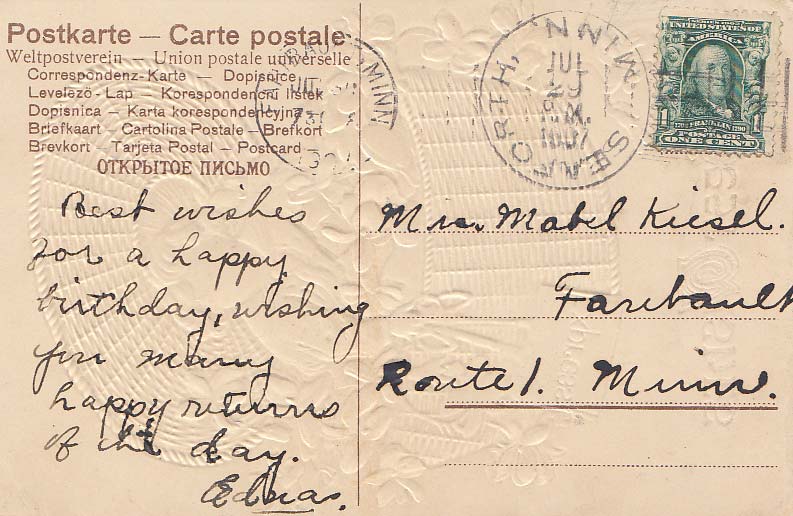 Postkarte — Carte postale
Weltpostverein — Union postale universelle
Correspondenz-Karte — Dopisnice
Levelezö-Lap — Korespondencni listek
Dopisnica — Karta korespondencyjna
Briefkaart — Cartolina Postale — Brefkort
Brevkort — Tarjeta Postal — Postcard
ОТКРЫТОЕ ПИСЬМО
MINN
SEAFORTH, MINN
JUL
29
A.M.
1907
SERIES 1902
UNITED STATES OF
AMERICA
1706 FRANKLIN 1790
1 1
POSTAGE
ONE CENT
Best wishes
for a happy
birthday, wishing
you many
happy returns
of the day.
Ednas.
Mrs. Mabel Kiesel.
Faribault
Route 1. Minn.